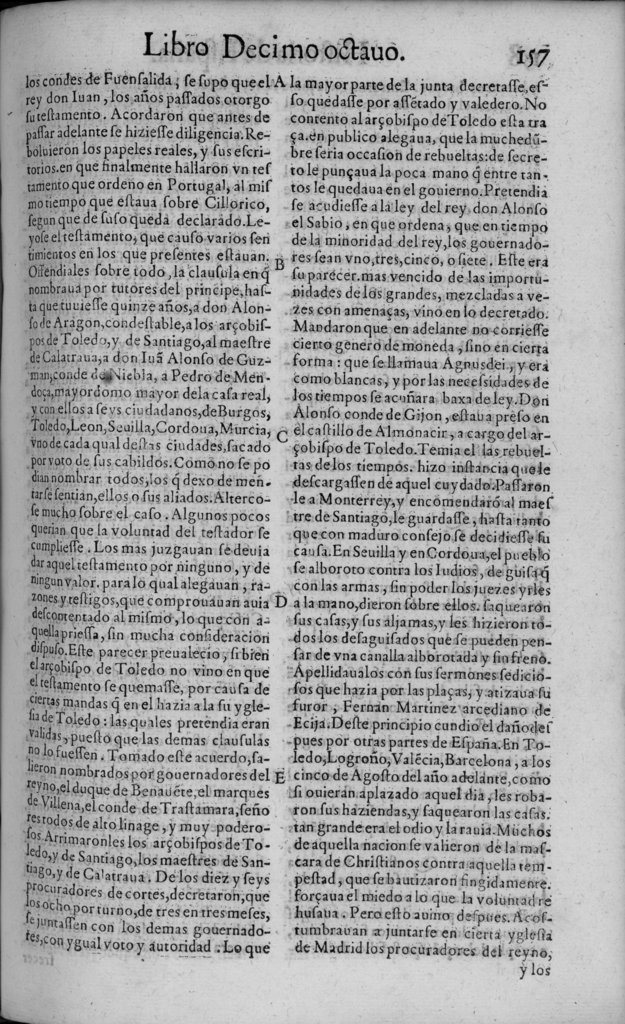 Libro Decimo octauo.
157
los condes de Fuensalida, se supo que el
rey don Iuan, los años passados otorgo
su testamento. Acordaron que antes de
passar adelante se hiziesse diligencia. Re-
boluieron los papeles reales, y sus escri-
torios. en que finalmente hallaron vn tes
tamento que ordeno en Portugal, al mis
mo tiempo que estaua sobre Cillorico,
segun que de suso queda declarado. Le-
yose el testamento, que causo varios sen
timientos en los que presentes estauan.
Ofendiales sobre todo, la clausula en q̃
nombraua por tutores del principe, has-
ta que tuuiesse quinze años, a don Alon-
so de Aragon, condestable, a los arçobis-
pos de Toledo, y de Santiago, al maestre
de Calatraua, a don Iuã Alonso de Guz-
man, conde de Niebla, a Pedro de Men-
doça, mayordomo mayor de la casa real,
y con ellos a seys ciudadanos, de Burgos,
Toledo, Leon, Seuilla, Cordoua, Murcia,
vno de cada qual destas ciudades, sacado
por voto de sus cabildos. Como no se po
dian nombrar todos, los q̃ dexo de men-
tar se sentian, ellos o sus aliados. Alterco-
se mucho sobre el caso. Algunos pocos
querian que la voluntad del testador se
cumpliesse. Los mas juzgauan se deuia
dar aquel testamento por ninguno, y de
ningun valor. para lo qual alegauan, ra-
zones y testigos, que comprouauan auia
descontentado al mismo, lo que con a-
quella priessa, sin mucha consideracion
dispuso. Este parecer preualecio, si bien
el arçobispo de Toledo no vino en que
el testamento se quemasse, por causa de
ciertas mandas q̃ en el hazia a la su ygle-
sia de Toledo: las quales pretendia eran
validas, puesto que las demas clausulas
no lo fuessen. Tomado este acuerdo, sa-
lieron nombrados por gouernadores del
reyno, el duque de Benauẽte, el marques
de Villena, el conde de Trastamara, seño
res todos de alto linage, y muy podero-
sos. Arrimaronles los arçobispos de To-
ledo, y de Santiago, los maestres de San-
tiago, y de Calatraua. De los diez y seys
procuradores de cortes, decretaron, que
los ocho por turno, de tres en tres meses,
se juntassen con los demas gouernado-
res, con ygual voto y autoridad. Lo que
A
B
C
D
E
la mayor parte de la junta decretasse, es-
so quedasse por assẽtado y valedero. No
contento al arçobispo de Toledo esta tra
ça. en publico alegaua, que la muchedũ-
bre seria occasion de rebueltas: de secre-
to le punçaua la poca mano q̃ entre tan-
tos le quedaua en el gouierno. Pretendia
se acudiesse a la ley del rey don Alonso
el Sabio, en que ordena, que en tiempo
de la minoridad del rey, los gouernado-
res sean vno, tres, cinco, o siete. Este era
su parecer. mas vencido de las importu-
nidades de los grandes, mezcladas a ve-
zes con amenaças, vino en lo decretado.
Mandaron que en adelante no corriesse
cierto genero de moneda, sino en cierta
forma: que se llamaua Agnusdei, y era
como blancas, y por las necessidades de
los tiempos se acuñara baxa de ley. Don
Alonso conde de Gijon, estaua preso en
el castillo de Almonacir, a cargo del ar-
çobispo de Toledo. Temia el las rebuel-
tas de los tiempos. hizo instancia que le
descargassen de aquel cuydado. Passaron
le a Monterrey, y encomendarõ al maes
tre de Santiago, le guardasse, hasta tanto
que con maduro consejo se decidiesse su
causa. En Seuilla y en Cordoua, el pueblo
se alboroto contra los Iudios, de guisa q̃
con las armas, sin poder los juezes yrles
a la mano, dieron sobre ellos. saquearon
sus casas, y sus aljamas, y les hizieron to-
dos los desaguisados que se pueden pen-
sar de vna canalla alborotada y sin freno.
Apellidaualos con sus sermones sedicio-
sos que hazia por las plaças, y atizaua su
furor, Fernan Martinez arcediano de
Ecija. Deste principio cundio el daño des
pues por otras partes de España. En To-
ledo, Logroño, Valẽcia, Barcelona, a los
cinco de Agosto del año adelante, como
si ouieran aplazado aquel dia, les roba-
ron sus haziendas, y saquearon las casas.
tan grande era el odio y la rauia. Muchos
de aquella nacion se valieron de la mas-
cara de Christianos contra aquella tem-
pestad, que se bautizaron fingidamente.
forçaua el miedo a lo que la voluntad re
husaua. Pero esto auino despues. Acos-
tumbrauan a juntarse en cierta yglesia
de Madrid los procuradores del reyno,
y los